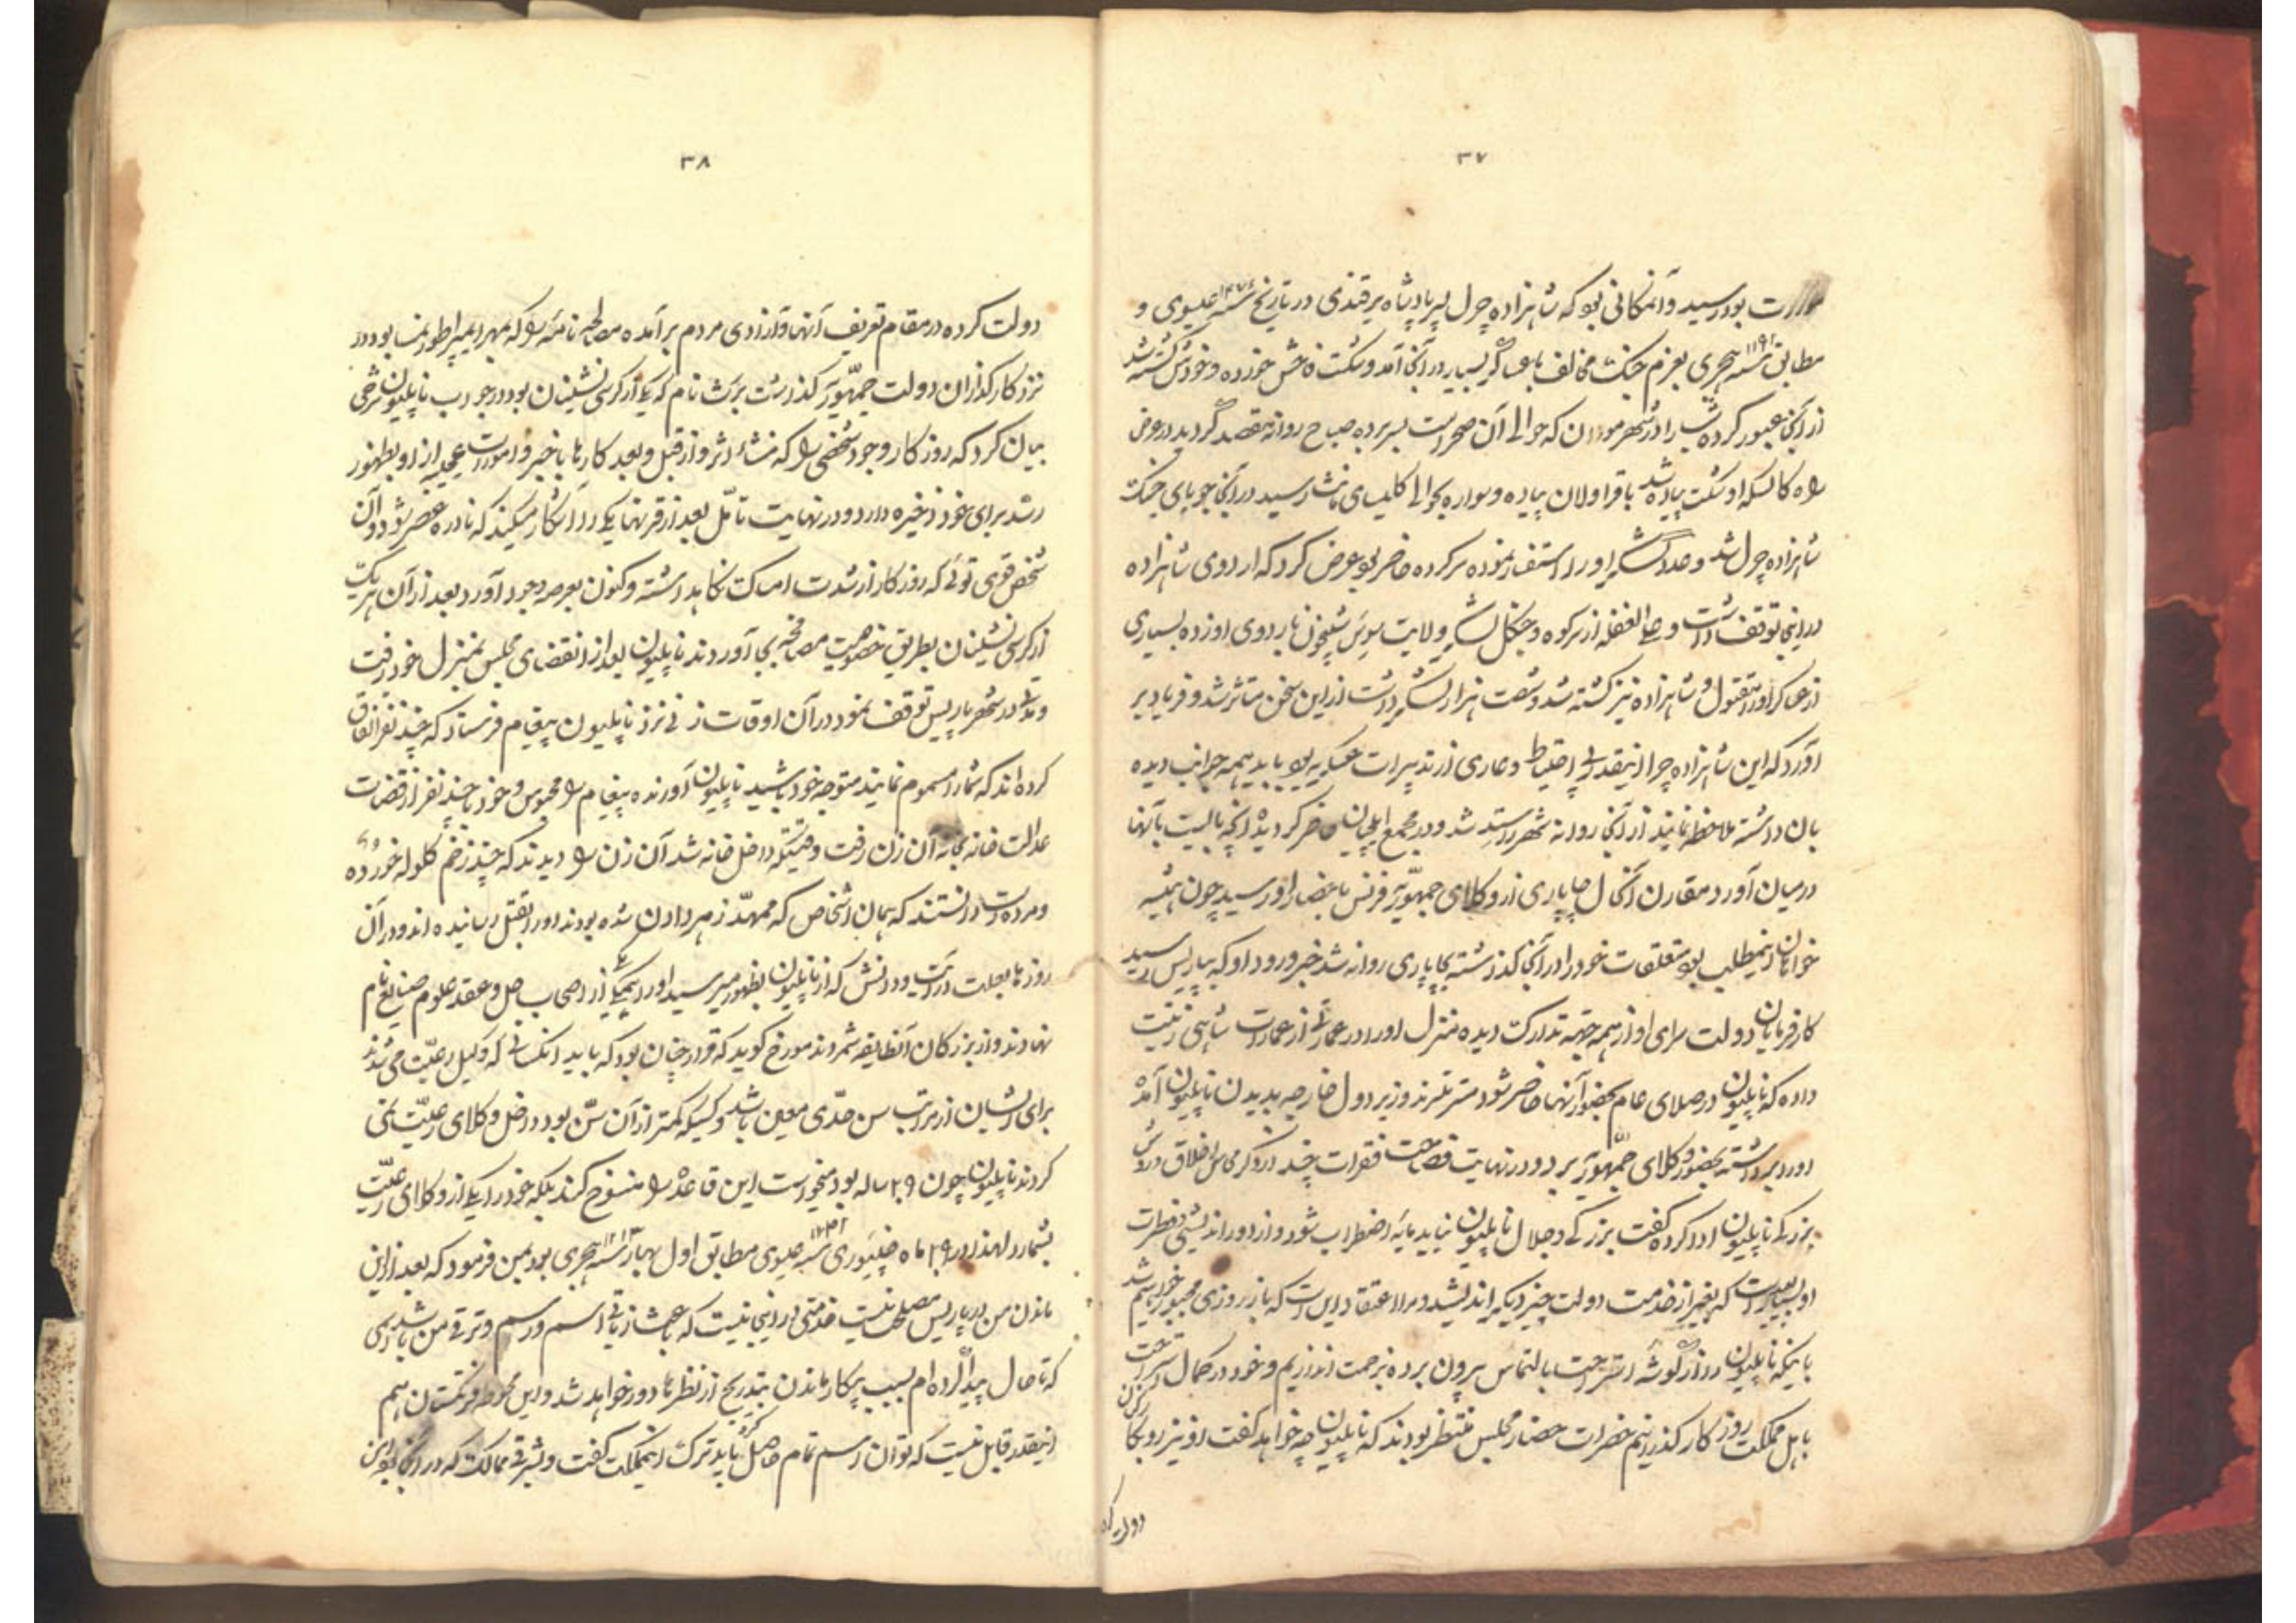 ۳۷
بود رسید و آنمکانی بود که شاهزاده چرل پسر پادشاه برقندی در تاریخ سنه ۱۴۷۶ عیسوی و
مطابق سنه هجری بعزم جنک مخالف با عساکر بسیار در آنجا آمد و شکست فاحش خورده و خودش کشته شد
از آنجا عبور کرده شب را در شهر که حوالی آن صحراست بسر برده صباح روانه مقصد گردید در عرض
راه کالسکه او شکست پیاده شد با قراولان پیاده و سواره بحوالی کلیسای رسید در آنجا جویای جنک
شاهزاده چرل شد و عدد لشکر او را استفسار نموده سرکرده حاضر بود عرض کرد که اردوی شاهزاده
در اینجا توقف داشت و علی الغفله از سر کوه و جنکل لشکر ولایت سویس شبیخون باردوی او زده بسیاری
از عساکر او مقتول و شاهزاده نیز کشته شد و شصت هزار لشکر داشت از این سخن متاثر شد و فریاد بر
آورد که این شاهزاده چرا اینقدر بی احتیاط و عاری از تدبیرات عسکریه بود باید همه جوانب دیده
بان داشته ملاحظه نمایند از آنجا روانه شهر شد و در مجمع ایلچیان حاضر کردیده آنچه بایست بآنها
در میان آورد مقارن آنحال چاپاری از وکلای جمهوریه فرنس باحضار او رسید چون همیشه
خواهان اینمطلب بود متعلقات خود را در آنجا کذاشته بچاپاری روانه شد خبر ورود او که بپاریس رسید
کارفرمایان دولت برای او از همه جهة تدارک دیده منزل او را در عمارتی از عمارات شاهی زینت
داده که ناپلیون در صلای عام بحضور آنها حاضر شود مستر تلرند وزیر دول خارجه بدیدن ناپلیون آمده
او را برداشته بحضور وکلای جمهوریه برد و در نهایت فصاحت فقرات چند در ذکر محاسن اخلاق و روش
بزرکی ناپلیون ادا کرده گفت بزرکی و جلال ناپلیون نباید مایه اضطراب شود و از دور اندیشی و فطرت
او بعید است که بغیر از خدمت دولت چیز دیکر اندیشد و مرا اعتقاد این است که باز روزی مجبور خواهیم شد
باینکه ناپلیون را از گوشه استراحت بالتماس بیرون برده بزحمت اندازیم و خود در کمال استراحت
با اهل مملکت روزکار کذرانیم حضرات حضار مجلس منتظر بودند که ناپلیون چه خواهد گفت او نیز رو بکارکذاران
دولت کرده
۳۸
دولت کرده در مقام تعریف آنها و آزادی مردم برآمده مصالحه نامهٔ را که بمهر ایمپراطور نمسا بود در
نزد کارکذاران دولت جمهوریه کذاشت برت نام که یکی از کرسی نشینان بود در جواب ناپلیون شرحی
بیان کرد که روزکار وجود شخصی را که منشاء اثر و از قبل و بعد کارها باخبر و امورات عجیبه از او بظهور
رسد برای خود ذخیره دارد و در نهایت تأمل بعد از قرنها یکی را آشکار میکند که نادره عصر شود و آن
شخص قوی توئی که روزکار از شدت امساک نکاهداشته و کنون بعرصه وجود آورد بعد از آن هر یک
از کرسی نشینان بطریق خصوصیت مصافحه بجا آوردند ناپلیون بعد از انقضای مجلس بمنزل خود رفت
و مدتی در شهر پاریس توقف نمود در آن اوقات زنی نزد ناپلیون پیغام فرستاد که چند نفر اتفاق
کرده اند که شما را مسموم نمایند متوجه خود باشید ناپلیون آورنده پیغام را محبوس و خود با چند نفر از قضات
عدالت خانه بخانه آن زن رفت وقتیکه داخل خانه شد آن زن را دیدند که چند زخم کلوله خورده
و مرده است دانستند که همان اشخاص که ممهد زهر دادن شده بودند او را بقتل رسانیده اند و در آن
روزها بعلت و دانش که از ناپلیون بظهور میرسید او را یکی از اصحاب حل و عقد علوم صنایع نام
نهادند و از بزرکان آنطایفه شمردند مورخ کوید که قرار چنان بود که باید آنکسانی که وکیل رعیت می شدند
برای ایشان از مراتب سن حدی معین باشد و کسیکه کمتر از آن سن بود داخل وکلای رعیت نمی
کردند ناپلیون چون ۲۹ ساله بود میخواست این قاعده را منسوخ کند بلکه خود را یکی از وکلای رعیت
بشمارد لهذا در ۲۹ ماه سنه عیسوی مطابق اول بهار سنه ۱۲۱۳ هجری بود بمن فرمود که بعد از این
ماندن من در پاریس مصلحت نیست خدمتی در اینجا نیست که باعث ازیاد اسم و رسم و ترقی من باشد اسمی
که تا حال پیدا کرده ام بسبب بیکار ماندن بتدریج از نظرها دور خواهد شد و این فرنکستان هم
اینقدر قابل نیست که توان اسم تمام حاصل کرد باید ترک اینمملکت گفت و بشرقی ممالک که در آنجا